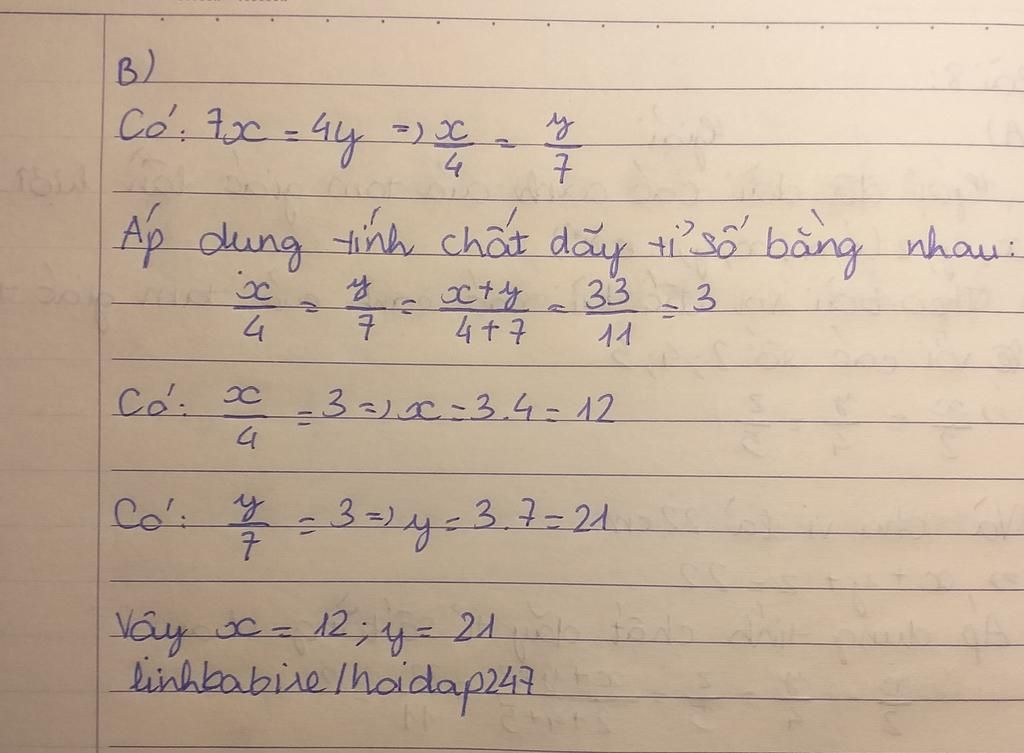 B)
Có: 7x = 4y => x/4 = y/7
Áp dung tính chất dãy tỉ số bằng nhau:
x/4 = y/7 = x+y/4+7 = 33/11 = 3
Có: x/4 = 3 => x = 3.4 = 12
Có: y/7 = 3 => y = 3.7 = 21
Vây x = 12; y = 21
linhbabie/hoidap247